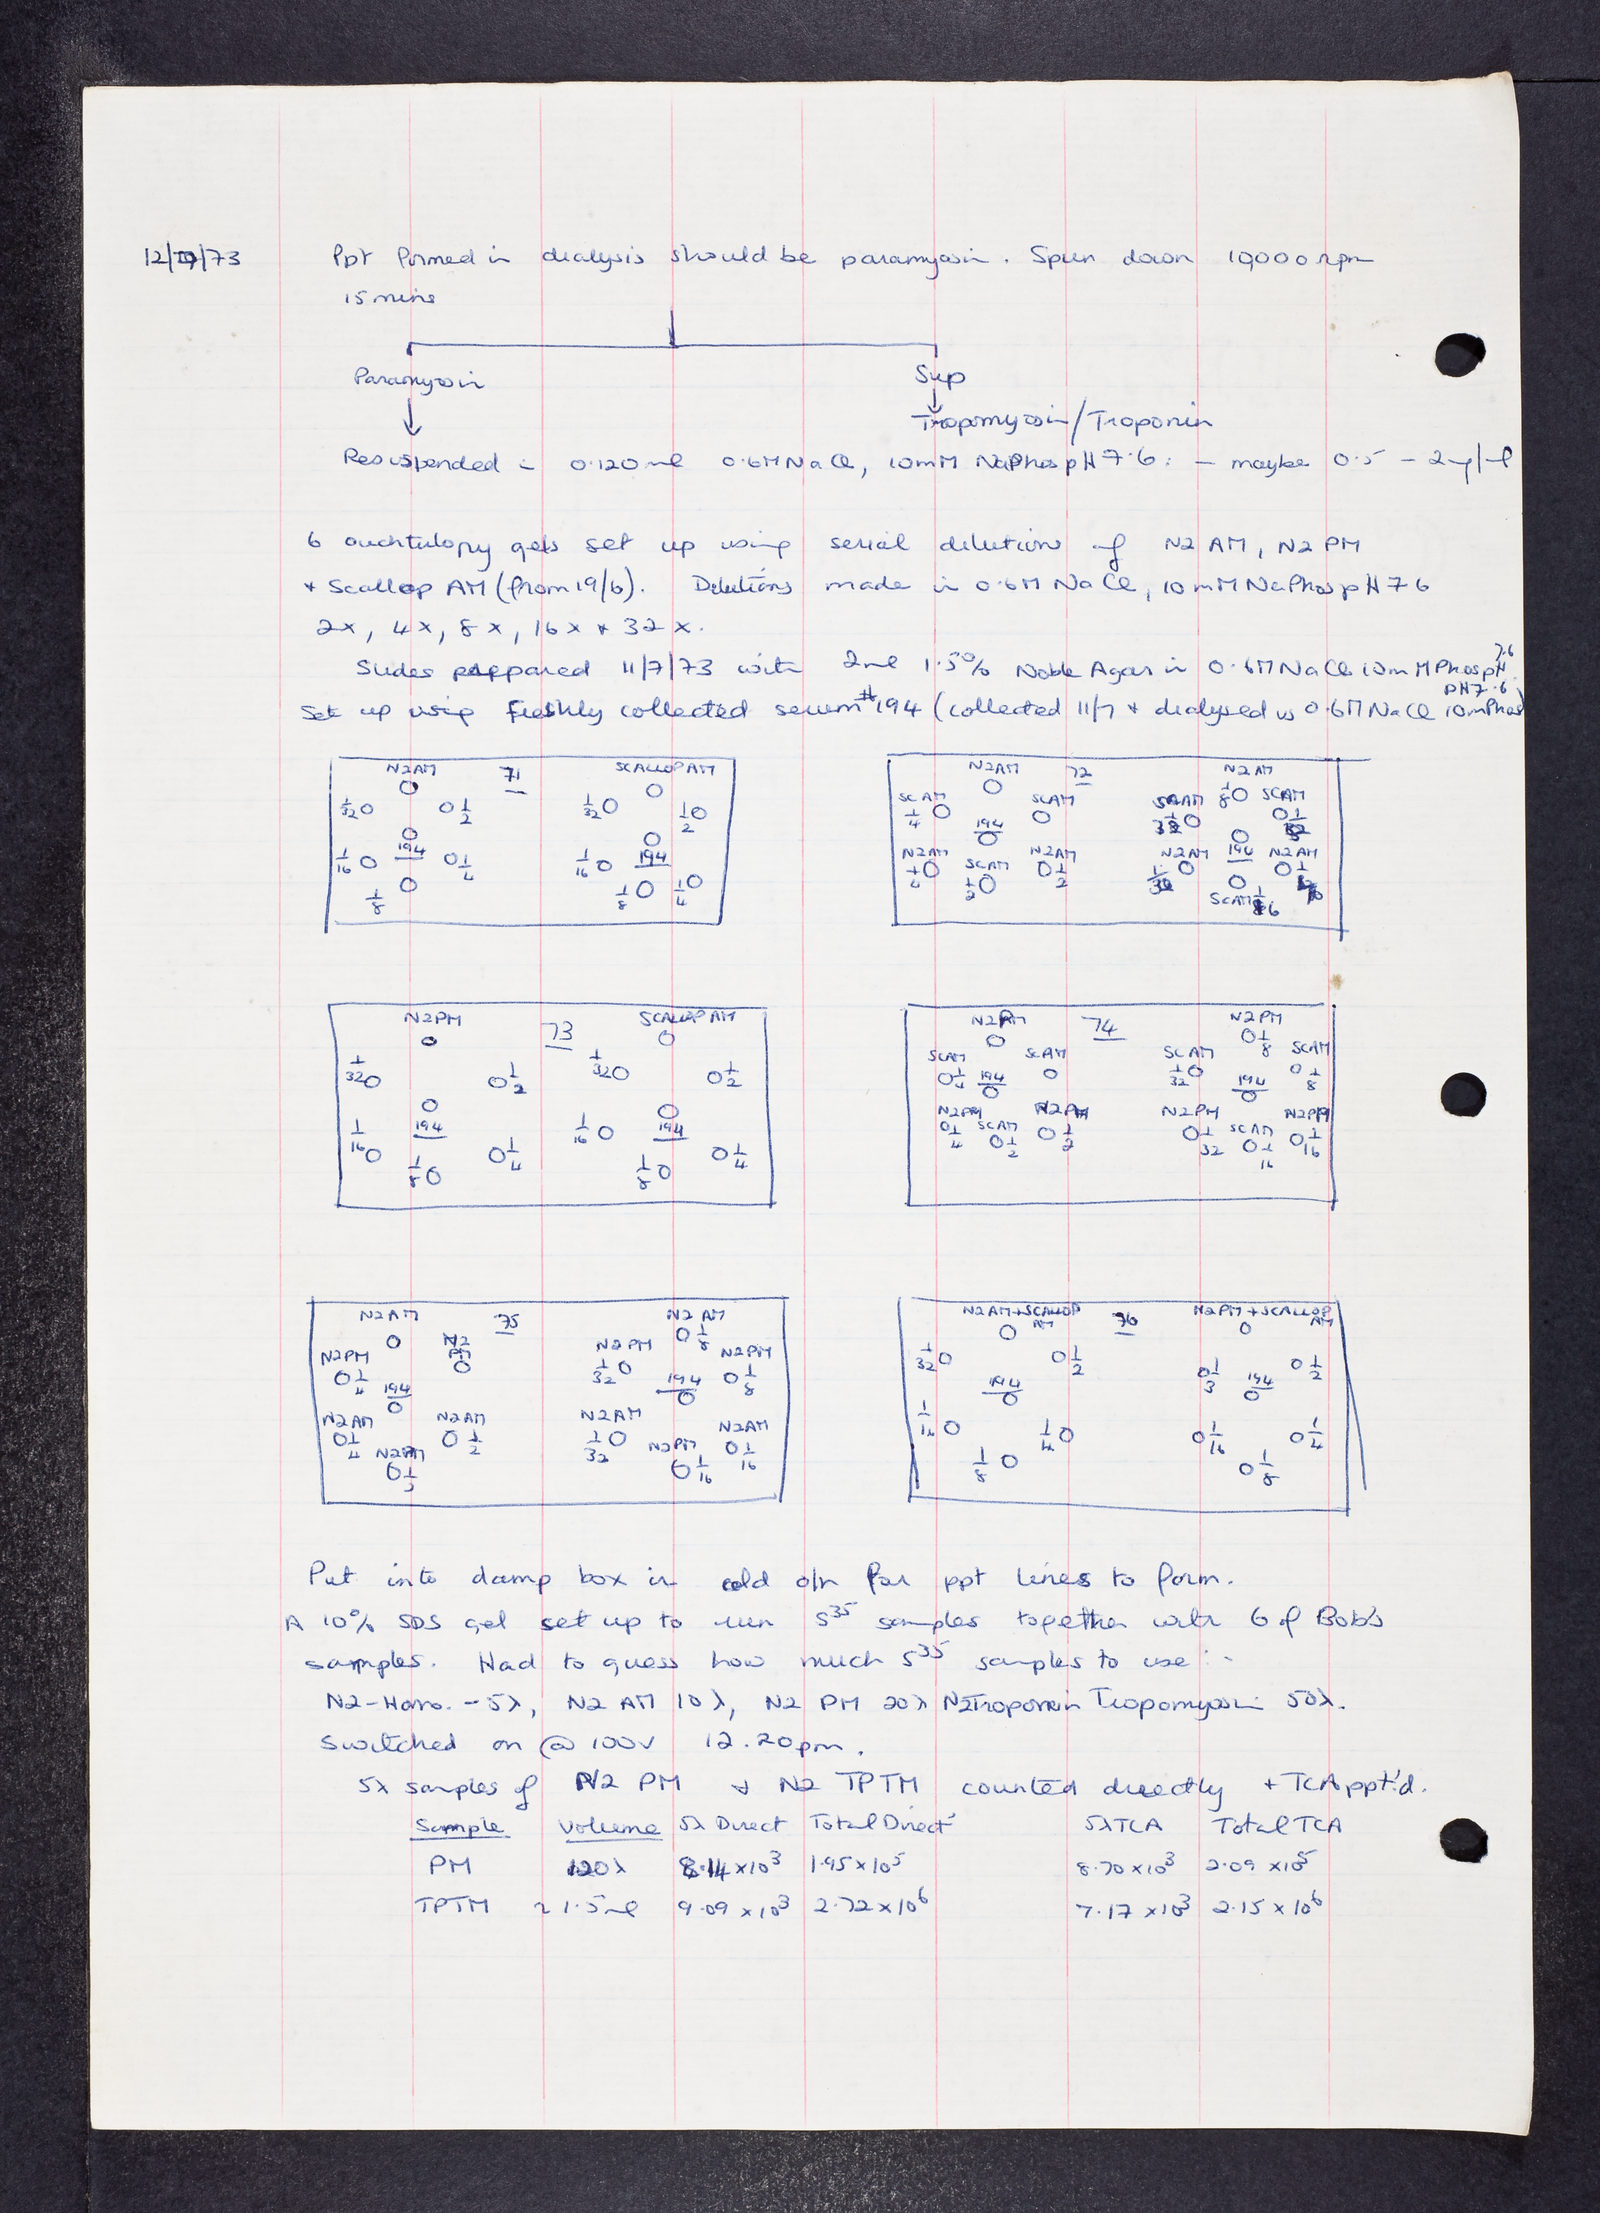 12/7/73 Ppt formed in dialysis should be paramyosin. Spun down 10,000 rpm
15 mins
Paramyosin Sup
Tropomyosin/Troponin
Resuspended in 0.120 ml 0.6M NaCl, 10mM NaPhos pH 7.6: - maybe 0.5 - 2mg/ml
6 ouchtulony gels set up using serial dilutions of N2 AM, N2 PM
+ Scallop AM (from 19/6). Dilutions made in 0.6M NaCl, 10mM NaPhos pH 7.6
2x, 4x, 8x, 16x + 32x.
Slides prepared 11/7/73 with 2ml 1.5% Noble Agar in 0.6M NaCl 10mM Phos pH 7.6
Set up using freshly collected serum #194 (collected 11/7 + dialysed vs 0.6M NaCl 10mPhos pH 7.6)
N2AM 71 SCALLOP AM
1/32 1/2 1/32 1/2
194 194
1/16 1/4 1/16
1/8 1/8 1/4
N2AM 72 N2AM
SCAM 1/4 SCAM SCAM 1/8 SCAM
194
N2AM 1/4 SCAM 1/2 N2AM 1/2 N2AM 194 N2AM
SCAM
N2PM 73 SCALLOP AM
1/32 1/2 1/32 1/2
194 194
1/16 1/4 1/16 1/4
1/8 1/8
N2PM 74 N2PM 1/8
SCAM 1/4 SCAM SCAM 1/32 SCAM 1/8
194 194
N2PM 1/4 SCAM 1/2 N2PM 1/2 N2PM 1/32 SCAM 1/16 N2PM 1/16
N2AM 75 N2AM 1/8
N2PM 1/4 N2 PM N2PM 1/32 N2PM 1/8
194 194
N2AM 1/4 N2AM 1/2 N2AM 1/32 N2AM 1/16
N2PM 1/2 N2PM 1/16
N2AM+SCALLOP AM 76 N2PM+SCALLOP AM
1/32 1/2 1/3 1/2
194 194
1/16 1/4 1/16 1/4
1/8 1/8
Put into damp box in cold o/n for ppt lines to form.
A 10% SDS gel set up to run S35 samples together with 6 of Bob's
samples. Had to guess how much S35 samples to use :-
N2-Homo. - 5λ, N2 AM 10λ, N2 PM 20λ N2 Troponin Tropomyosin 50λ.
Switched on @ 100V 12.20pm.
5λ samples of N2 PM + N2 TPTM counted directly + TCA ppt'd.
Sample Volume 5λ Direct Total Direct 5λ TCA Total TCA
PM 120λ 8.14 x10³ 1.95 x10⁵ 8.70 x10³ 2.09 x10⁵
TPTM ~ 1.5ml 9.09 x10³ 2.72 x10⁶ 7.17 x10³ 2.15 x10⁶